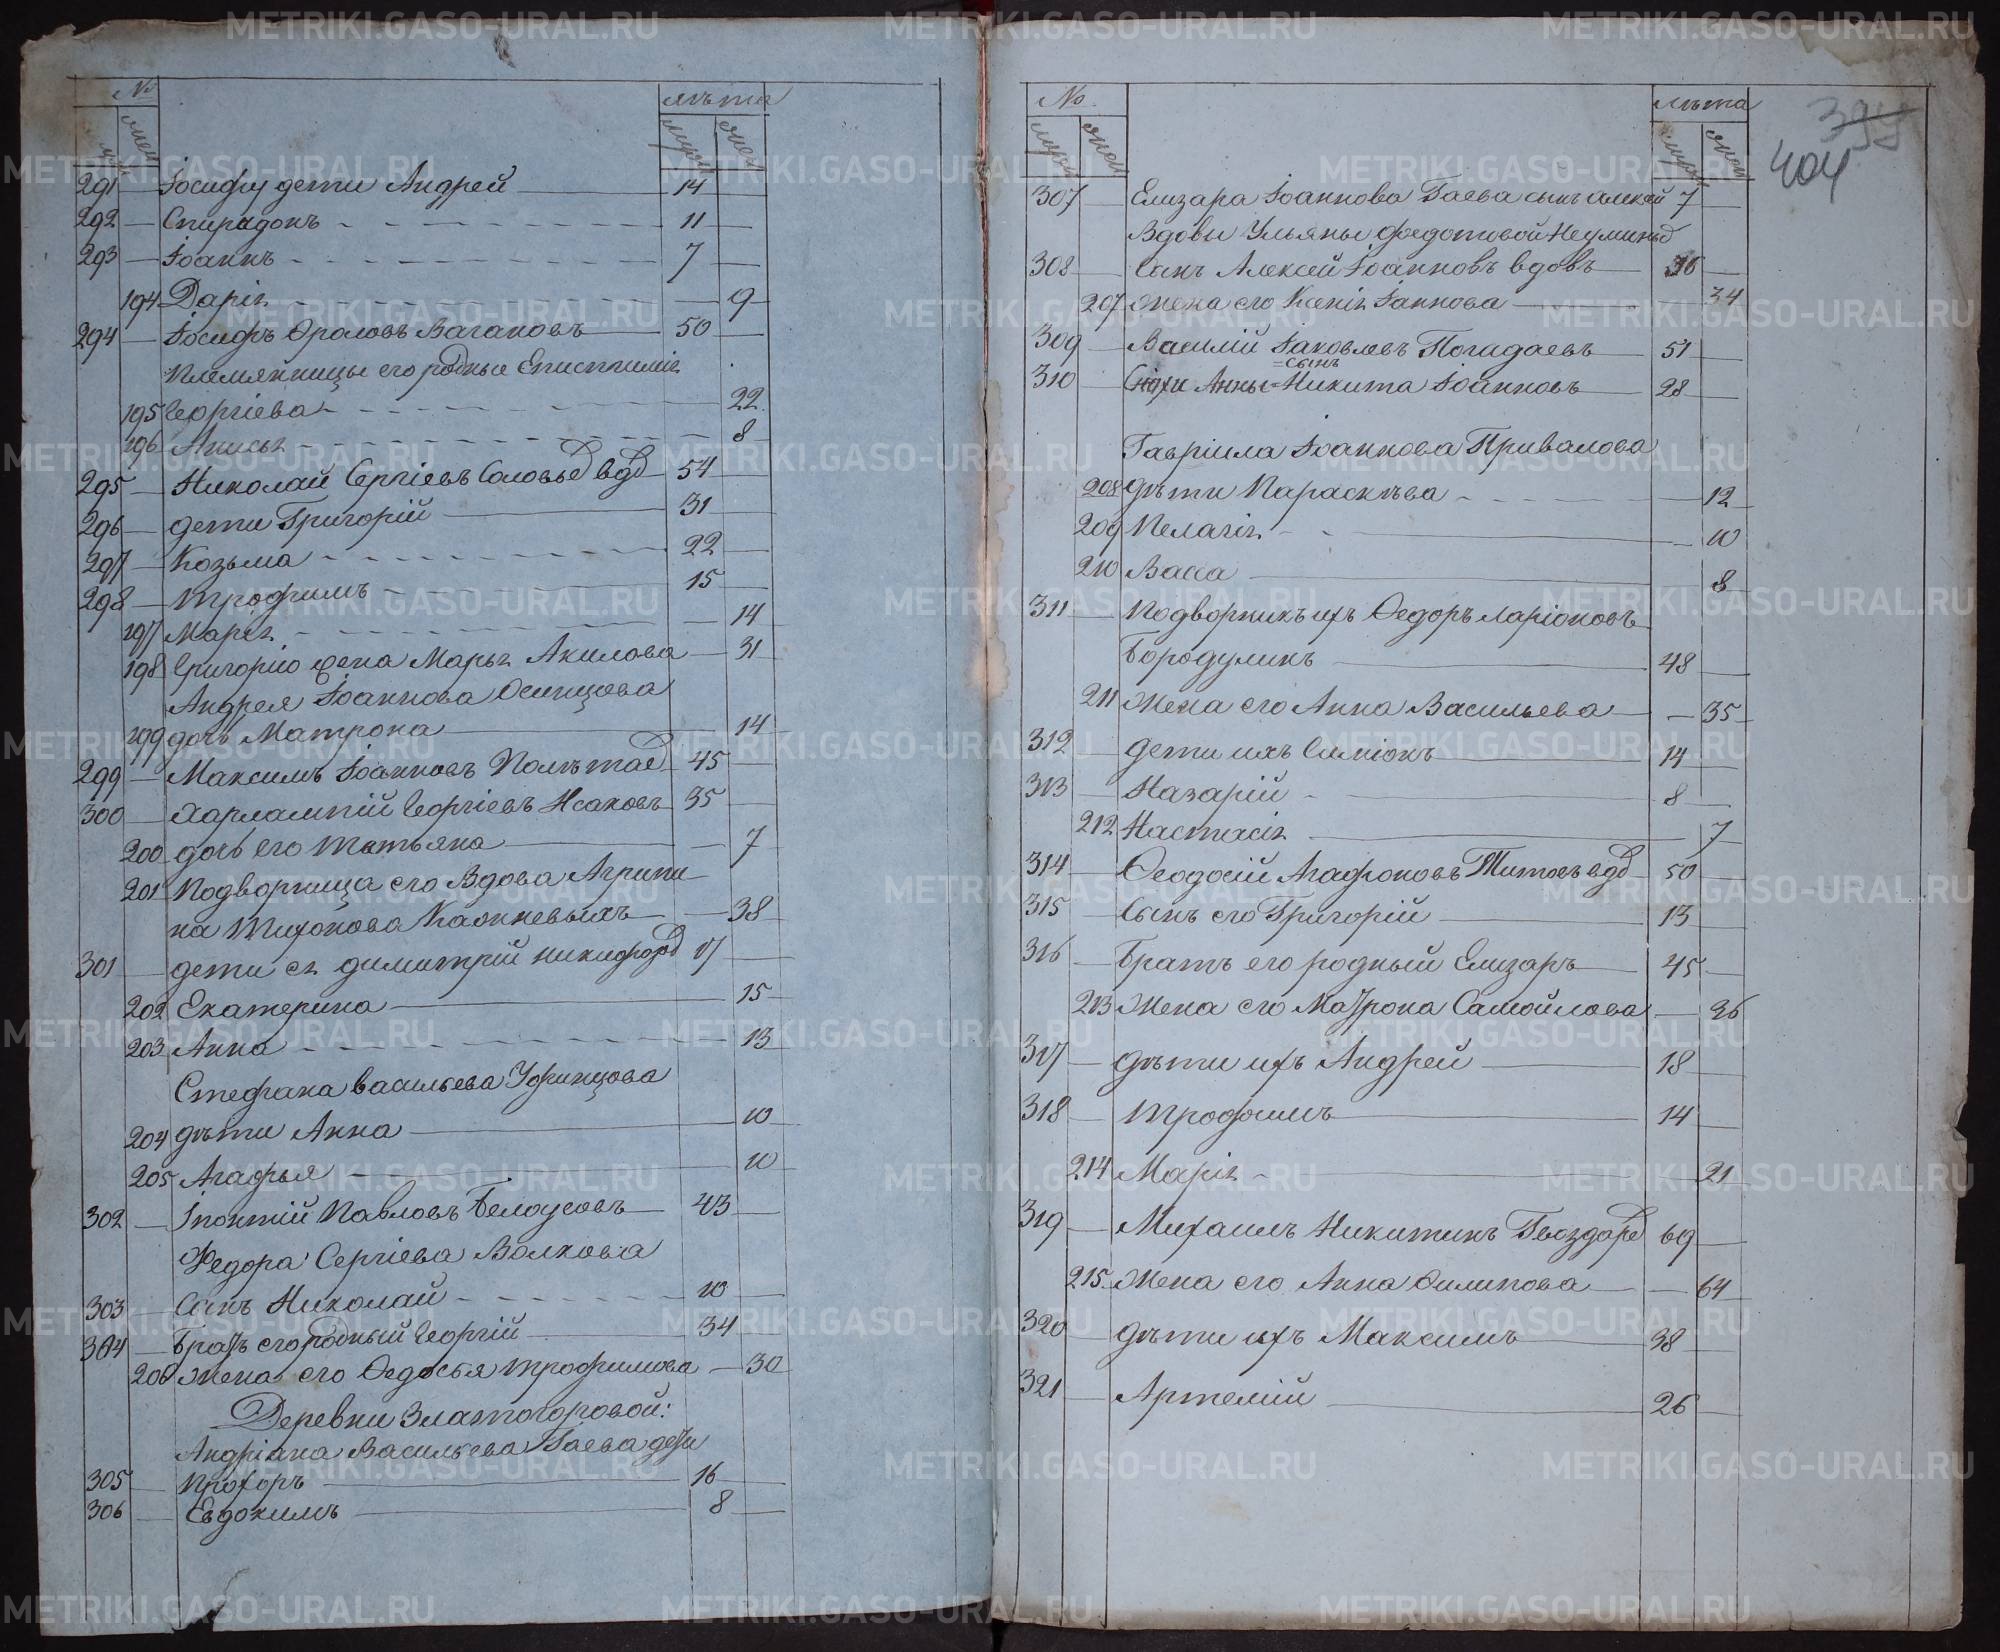 № лѣта
муж жен муж жен
291 Іосифу дети Андрей 14
292 Спиридонъ 11
293 Іоаннъ 7
194 Дарія 9
294 Іосифъ Фроловъ Вагановъ 50
племянницы его родные Епистимія
195 Георгіева 22
196 Анисья 8
295 Николай Сергіевъ Соловьев вдв 54
296 дети Григорій 31
297 Козьма 22
298 Трофимъ 15
197 Марія 14
198 Григорію жена Марья Акилова 31
Андрея Іоаннова Осинцова
199 дочь Матрона 14
299 Максимъ Іоанновъ Полѣтаев 45
300 Харлампій Георгіевъ Исаковъ 35
200 дочь его Татьяна 7
201 Подворница его Вдова Агрипи
на Тихонова Кажневыхъ 38
301 дети ея Димитрій Никифоров 17
202 Екатерина 15
203 Анна 13
Стефана Васильева Уфинцова
204 дѣти Анна 10
205 Агафья 10
302 Інонтій Павловъ Белоусовъ 43
Федора Сергіева Волкова
303 Сынъ Николай 10
304 Братъ его родный Георгій 34
206 Жена его Федосья Трофимова 30
Деревни Златогоровой:
Андріана Васильева Гаева дети
305 Прохоръ 16
306 Евдокимъ 8
№ лѣта
муж жен муж жен
399
404
307 Елизара Іоаннова Гаева сынъ Алексѣй 7
Вдовы Ульяны Федотовой Неуминой
308 Сынъ Алексей Іоанновъ вдовъ 36
207 Жена его Ксенія Іаннова 34
309 Василій Іаковлевъ Погадаевъ 51
=сынъ
310 Анны=Никита Іоанновъ 28
Гавріила Іоаннова Привалова
208 Дѣти Параскѣва 12
209 Пелагія 10
210 Васса 8
311 Подворникъ ихъ Федоръ Ларіоновъ
Бородулинъ 48
211 Жена его Анна Васильева 35
312 дети ихъ Симіонъ 14
313 Назарій 8
212 Настасія 7
314 Феодосій Агафоновъ Титовъ вдв 50
315 Сынъ его Григорій 13
316 Братъ его родный Елизаръ 45
213 Жена его Матрона Самойлова 36
317 дѣти ихъ Андрей 18
318 Трофимъ 14
214 Марія 21
319 Михаилъ Никитинъ Гвоздарев 69
215 Жена его Анна Филипова 64
320 дѣти ихъ Максимъ 38
321 Артемій 26
METRIKI.GASO-URAL.RU